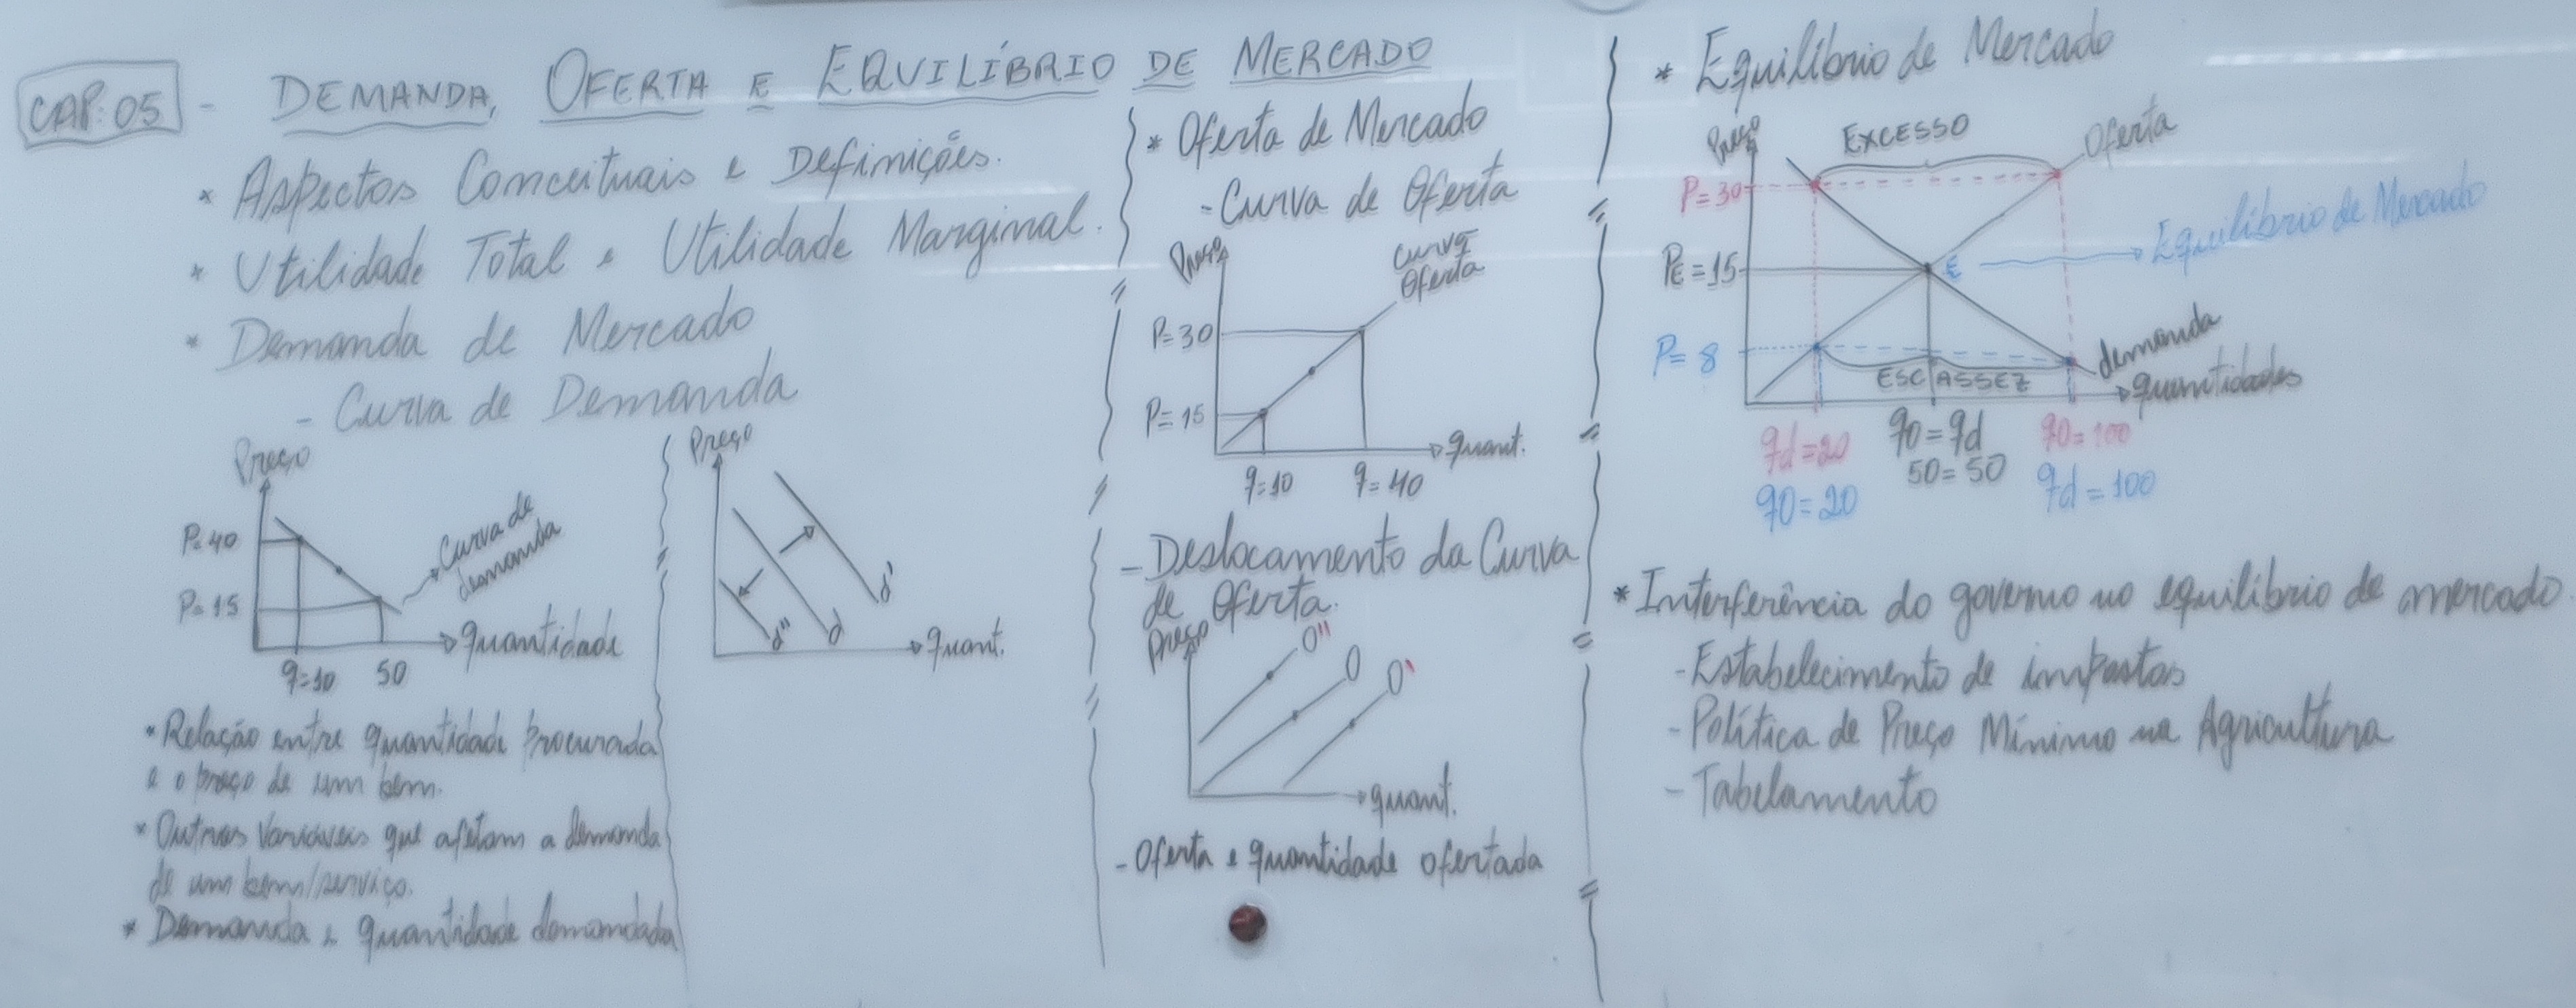 CAP. 05 - DEMANDA, OFERTA E EQUILÍBRIO DE MERCADO
* Aspectos Conceituais e Definições.
* Utilidade Total e Utilidade Marginal.
* Demanda de Mercado
- Curva de Demanda
Preço
P=40
P=15
q=10
50
quantidade
Curva de
demanda
Preço
d'
d
d''
quant.
* Relação entre quantidade procurada
e o preço de um bem.
* Outras Variáveis que afetam a demanda
de um bem/serviço.
* Demanda e quantidade demandada
* Oferta de Mercado
- Curva de Oferta
Preço
Curva
Oferta
P=30
P=15
q=10
q=40
quant.
- Deslocamento da Curva
de Oferta.
Preço
O''
O
O'
quant.
- Oferta e quantidade ofertada
* Equilíbrio de Mercado
Preço
EXCESSO
Oferta
P=30
PE=15
E
Equilíbrio de Mercado
P=8
ESCASSEZ
demanda
quantidades
qd=20
q0=qd
q0=100
q0=20
50=50
qd=100
* Interferência do governo no equilíbrio de mercado.
- Estabelecimento de impostos
- Política de Preço Mínimo na Agricultura
- Tabelamento